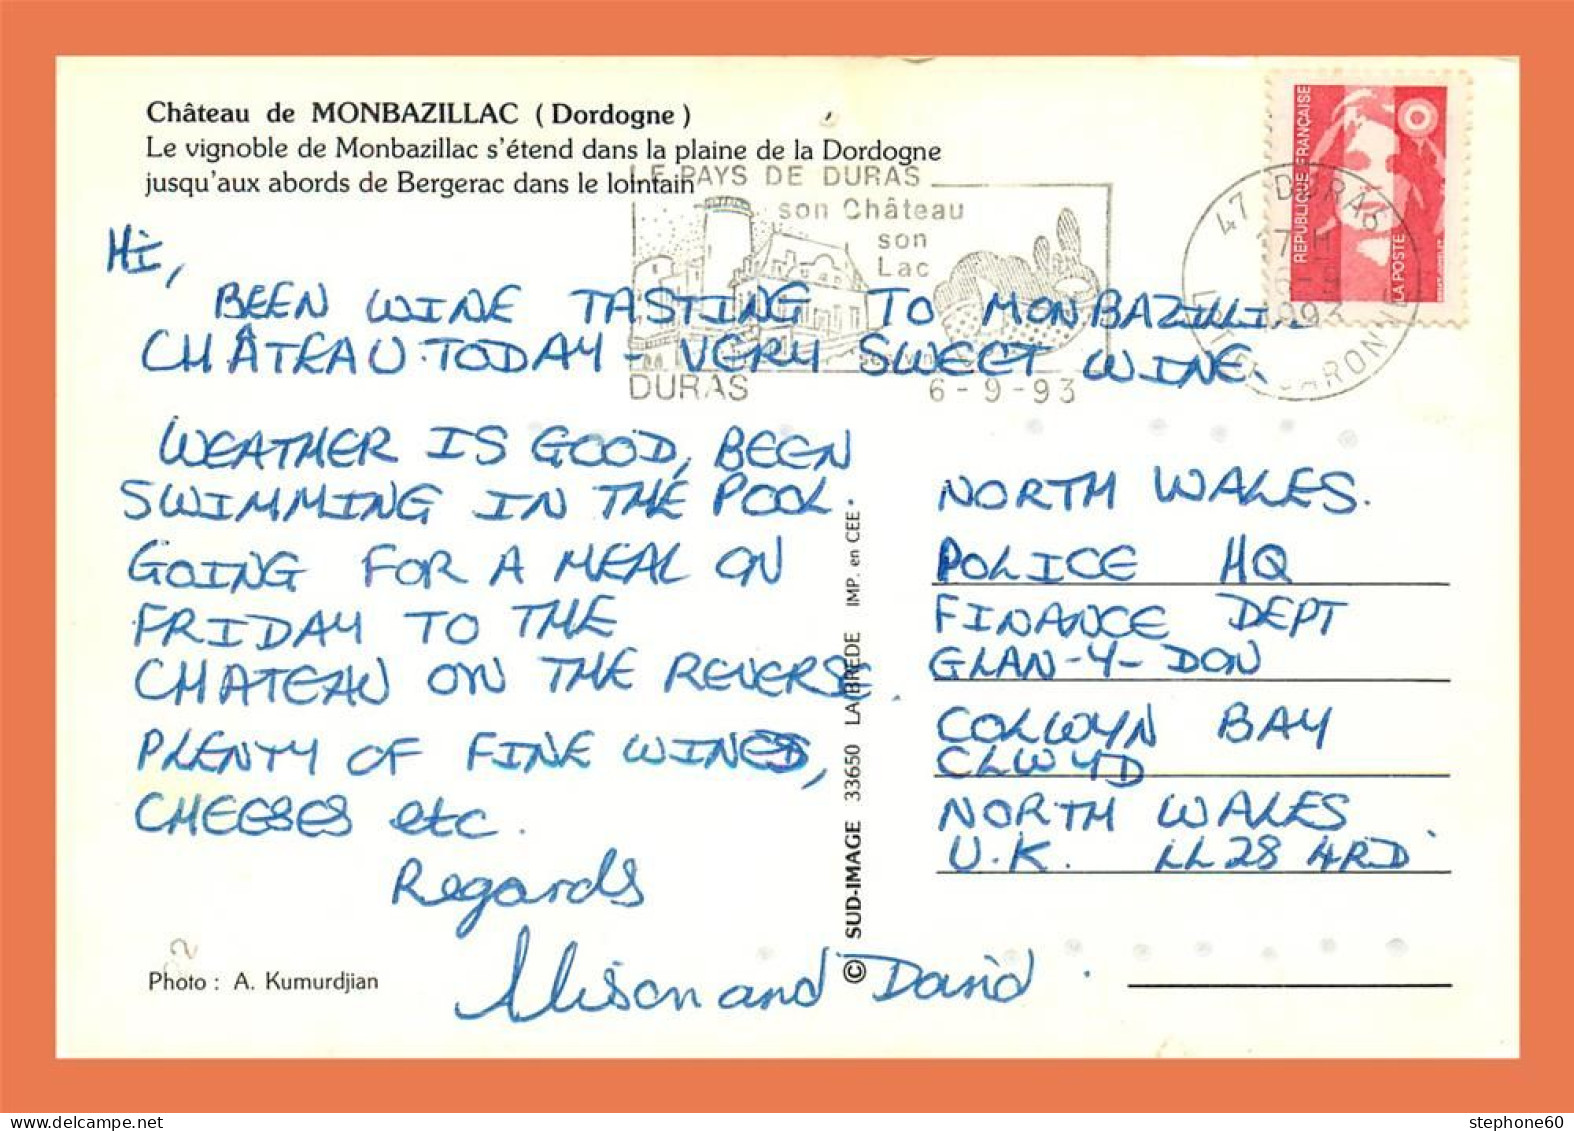 Château de MONBAZILLAC (Dordogne)
Le vignoble de Monbazillac s'étend dans la plaine de la Dordogne
jusqu'aux abords de Bergerac dans le lointain
LE PAYS DE DURAS
son Château
son
Lac
ses vins
DURAS
6-9-93
47 DURAS
17 H
1993
LOT ET GARONNE
REPUBLIQUE FRANÇAISE
LA POSTE
Hi,
BEEN WINE TASTING TO MONBAZILLIA
CHÂTEAU TODAY - VERY SWEET WINE.
WEATHER IS GOOD, BEEN
SWIMMING IN THE POOL.
GOING FOR A MEAL ON
FRIDAY TO THE
CHATEAU ON THE REVERSE.
PLENTY OF FINE WINES,
CHEESES etc.
Regards
Alison and David.
NORTH WALES.
POLICE HQ
FINANCE DEPT
GLAN-Y-DON
COLWYN BAY
CLWYD
NORTH WALES
U.K. LL28 4RD
© SUD-IMAGE 33650 LABREDE IMP. en CEE
Photo : A. Kumurdjian
stephone60